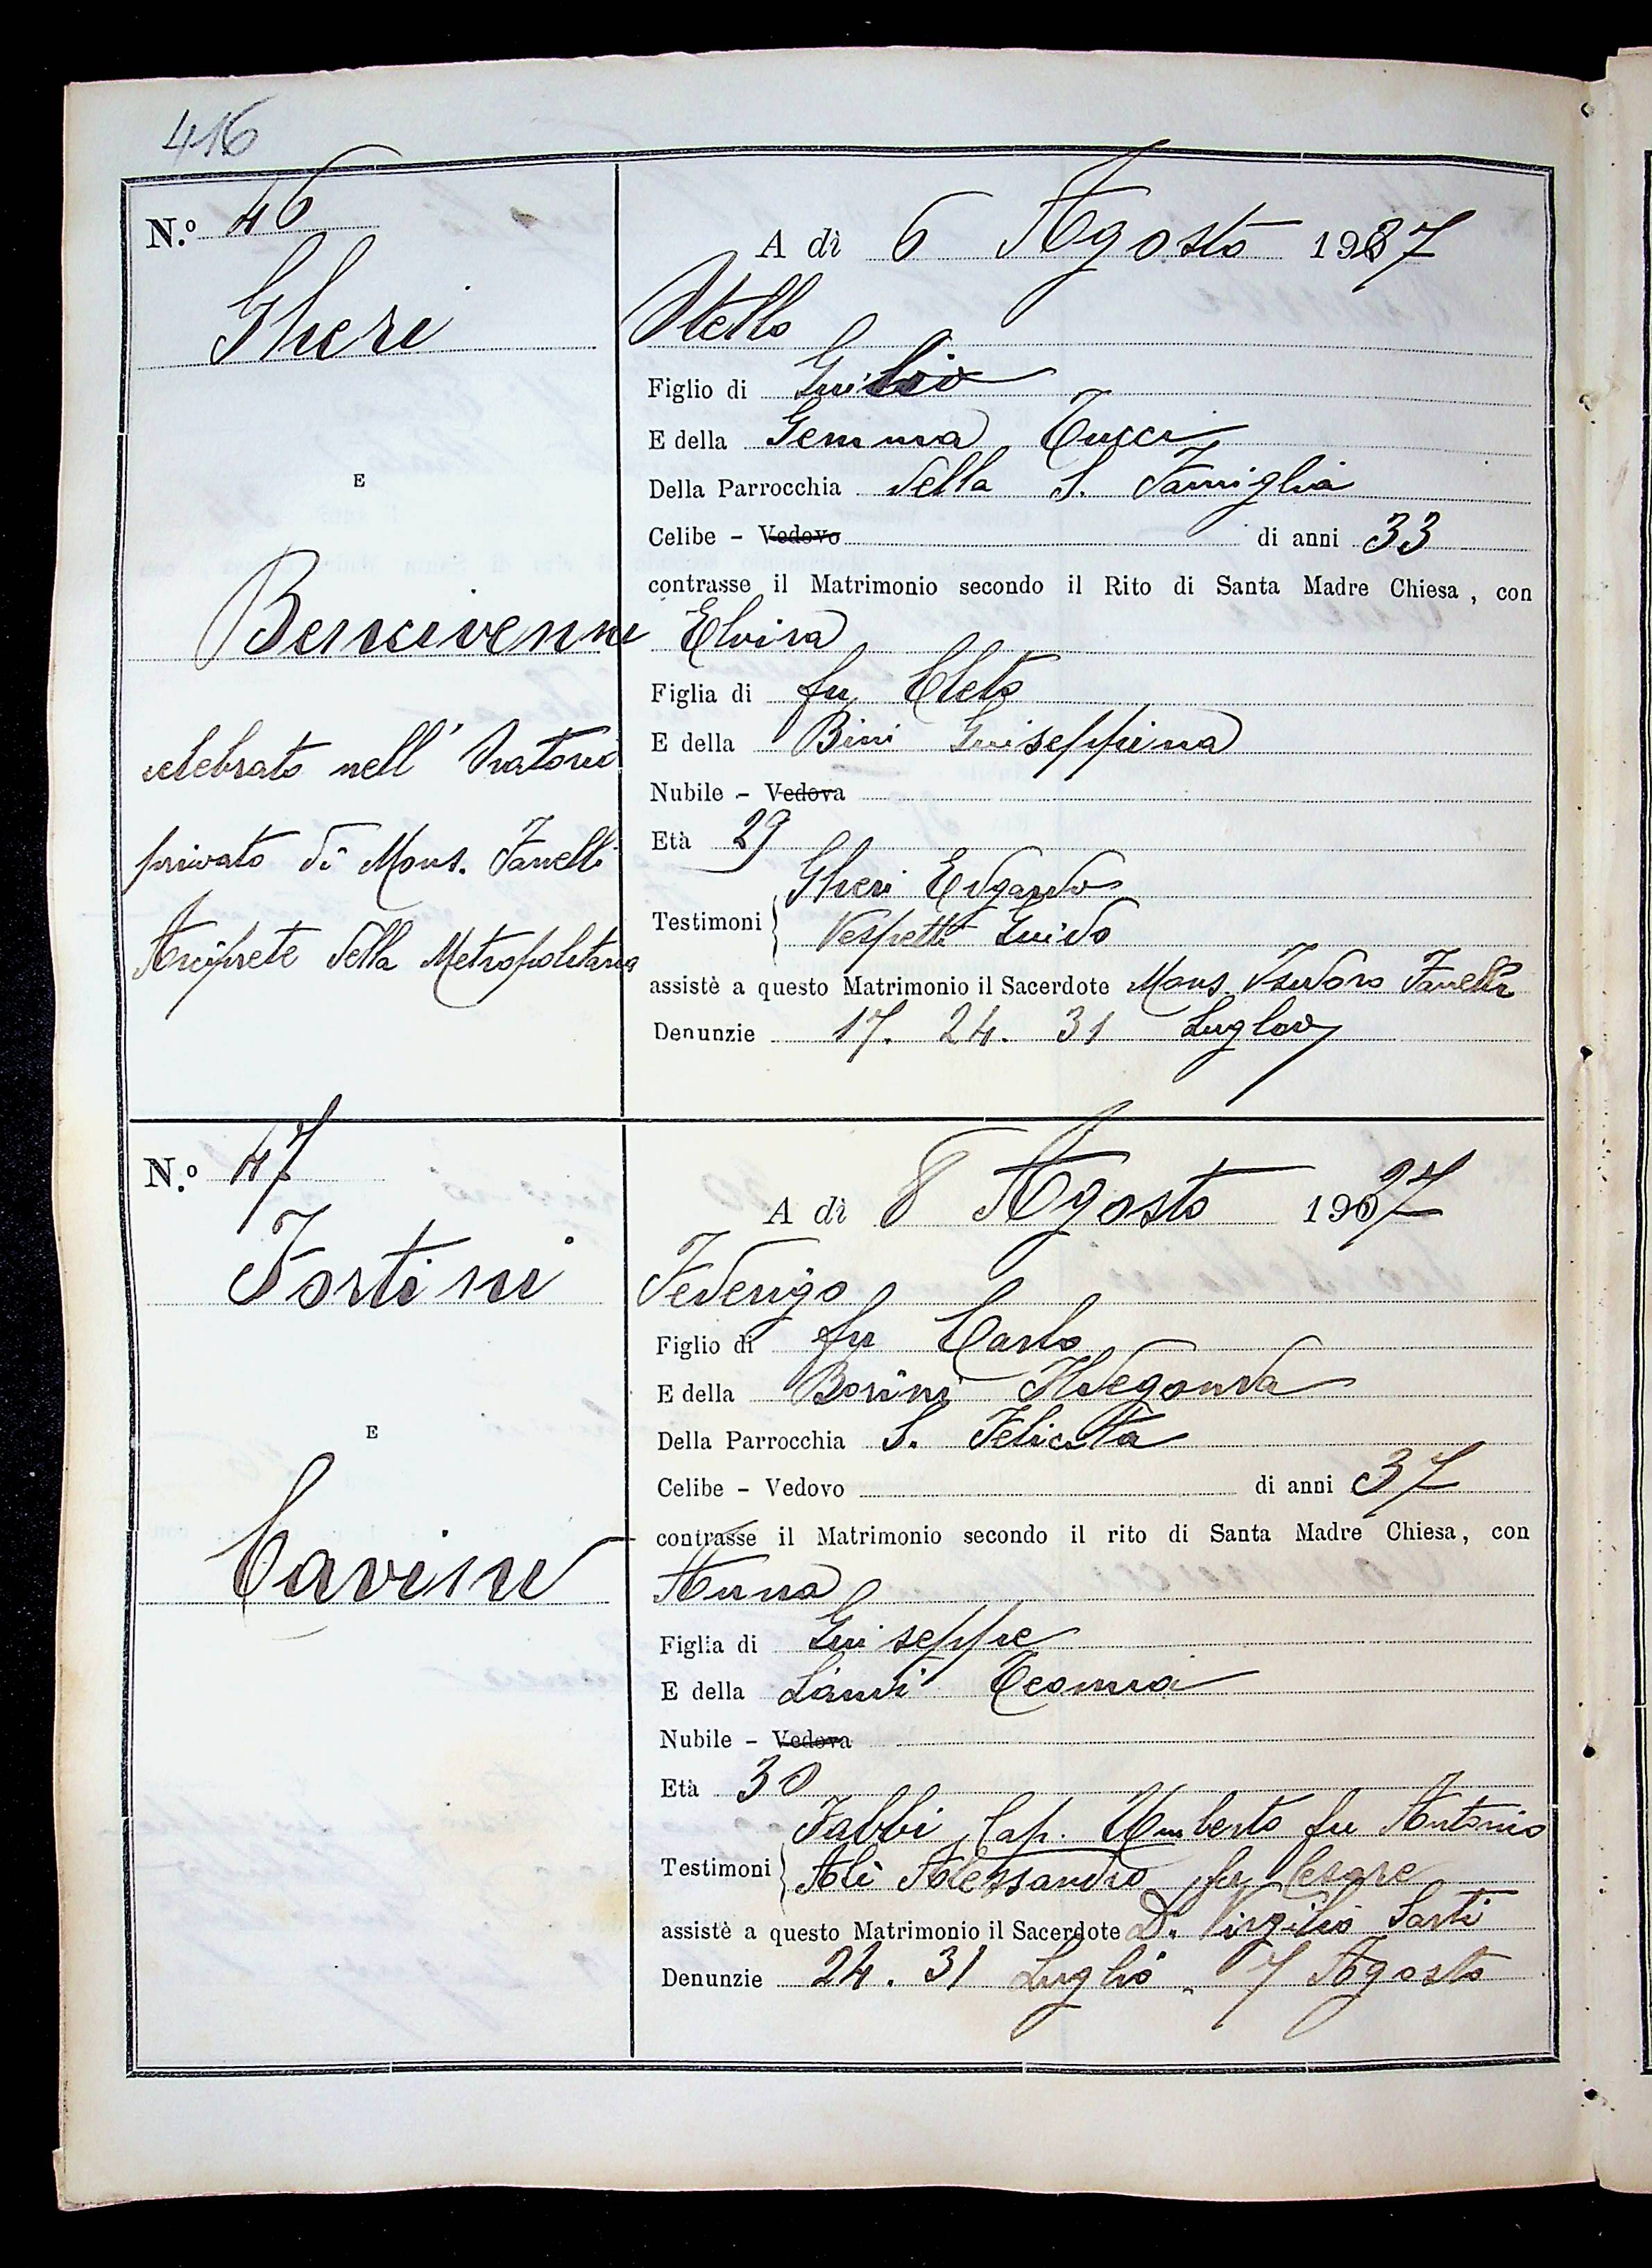 416
N.º 46
A dì 6 Agosto 1937
Gheri
Otello
Figlio di Giulio
E della Gemma Tucci
Della Parrocchia della S. Famiglia
E
Celibe - Vedovo di anni 33
contrasse il Matrimonio secondo il Rito di Santa Madre Chiesa, con
Bencivenni Elvira
Figlia di fu Cleto
E della Bini Giuseppina
celebrato nell'Oratorio
Nubile - Vedova
privato di Mons. Fanelli
Età 29
Arciprete della Metropolitana
Testimoni Gheri Edgardo
Vespetti Guido
assistè a questo Matrimonio il Sacerdote Mons. Isidoro Fanelli
Denunzie 17. 24. 31 Luglio
N.º 47
A dì 8 Agosto 1937
Fortini
Federigo
Figlio di fu Carlo
E della Borini Ildegonda
Della Parrocchia S. Felicita
E
Celibe - Vedovo di anni 37
contrasse il Matrimonio secondo il rito di Santa Madre Chiesa, con
Cavini
Anna
Figlia di Giuseppe
E della Landi
Nubile - Vedova
Età 30
Testimoni Fabbi Cap. Umberto fu Antonio
Alì Alessandro fu Cesare
assistè a questo Matrimonio il Sacerdote D. Virgilio Sarti
Denunzie 24. 31 Luglio. 7 Agosto